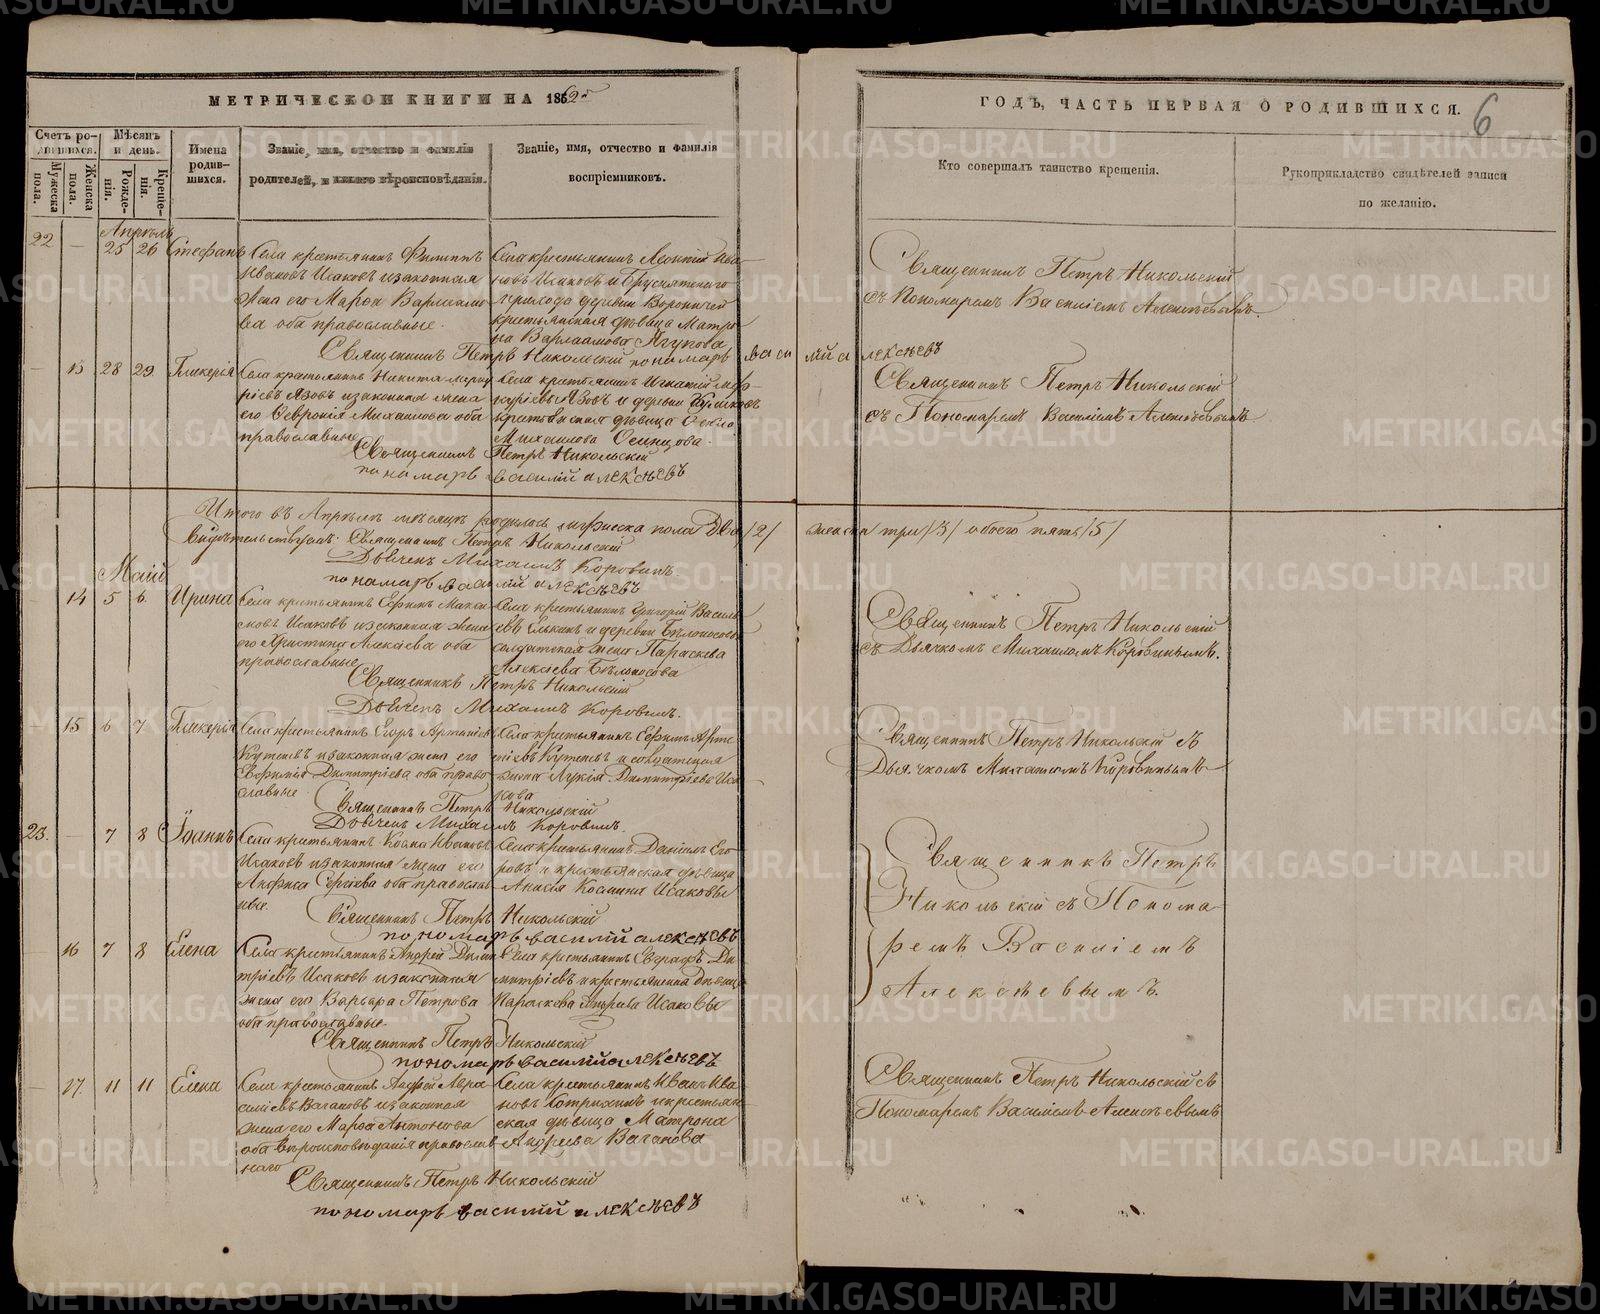 МЕТРИЧЕСКОЙ КНИГИ НА 1862й
ГОДЪ, ЧАСТЬ ПЕРВАЯ О РОДИВШИХСЯ.
6
Счетъ ро-
дившихся.
Мужеска пола.
Женска пола.
Мѣсяцъ
и день.
Рожде-
нія.
Креще-
нія.
Имена
родив-
шихся.
Званіе, имя, отчество и фамилія
родителей, и какого вѣроисповѣданія.
Званіе, имя, отчество и фамилія
воспріемниковъ.
Кто совершалъ таинство крещенія.
Рукоприкладство свидѣтелей записи
по желанію.
Апрѣль
22 — 25 26 Стефанъ
Села крестьянинъ Филиппъ
Ивановъ Исаковъ и законная
жена его Марѳа Варлаамо
ва оба православные.
Села крестьянинъ Леонтій Ива-
новъ Исаковъ и Бруснятскаго
прихода деревни
крестьянская дѣвица Матре
на Варлаамова
Священникъ Петръ Никольскій
съ Пономаремъ Василіемъ Алексѣевымъ.
Священникъ Петръ Никольскій пономарь василій алексѣевъ
— 13 28 29 Гликерія
Села крестьянинъ Никита
Язовъ и законная жена
его Февронія Михаилова оба
православные
Села крестьянинъ Игнатій
Язовъ и деревни
крестьянская дѣвица Ѳекла
Михаилова Осинцова.
Священникъ Петръ Никольскій
съ Пономаремъ Василіемъ Алексѣевымъ
Священникъ Петръ Никольскій
пономарь василій алексѣевъ
Итого въ Апрѣлѣ мѣсяцѣ родилось мужеска пола два /2/ женска три /3/ обоего пять /5/
Свидѣтельствуемъ: Священникъ Петръ Никольскій
Дьячекъ Михаилъ Коровинъ.
пономарь василій алексѣевъ
Маій
— 14 5 6 Ирина
Села крестьянинъ Ефимъ Макси
мовъ Исаковъ и законная жена
его Христина Алексѣева оба
православные
Села крестьянинъ Григорій Василь
евъ Елькинъ и деревни Бѣлоносовой
солдатская жена Параскева
Алексѣева Бѣлоносова
Священникъ Петръ Никольскій
съ Дьячкомъ Михаиломъ Коровинымъ.
Священникъ Петръ Никольскій
Дьячекъ Михаилъ Коровинъ.
— 15 6 7 Гликерія
Села крестьянинъ Егоръ
и законная жена его
Евфимія Димитріева оба право
славные
Села крестьянинъ Ефимъ
и солдатская
жена Лукія Димитріева Иса
кова
Священникъ Петръ Никольскій съ
Дьячкомъ Михаиломъ Коровинымъ
Священникъ Петръ Никольскій
Дьячекъ Михаилъ Коровинъ.
23. — 7 8 Іоаннъ
Села крестьянинъ Козма Ивановъ
Исаковъ и законная жена его
Анфиса Сергіева оба православ
ные.
Села крестьянинъ Даніилъ Его
ровъ и крестьянская дѣвица
Анисія Космина Исаковы
Священникъ Петръ
Никольскій съ Понома
ремъ Василіемъ
Алексѣевымъ.
Священникъ Петръ Никольскій
пономарь василій алексѣевъ
— 16 7 8 Елена
Села крестьянинъ Андрей Дими
тріевъ Исаковъ и законная
жена его Варвара Петрова
оба православные.
Села крестьянинъ Евграфъ Ди
митріевъ и крестьянина дѣвица
Параскева Андреева Исаковы
Священникъ Петръ Никольскій
пономарь василій алексѣевъ
— 17. 11 11 Елена
Села крестьянинъ Андрей Авра
Вагановъ и законная
жена его Марѳа Антонова
оба вѣроисповѣданія православ
наго
Села крестьянинъ Иванъ Ива
новъ и крестьян
ская дѣвица Матрона
Андреева Ваганова
Священникъ Петръ Никольскій съ
Пономаремъ Василіемъ Алексѣевымъ
Священникъ Петръ Никольскій
пономарь василій алексѣевъ
METRIKI.GASO-URAL.RU